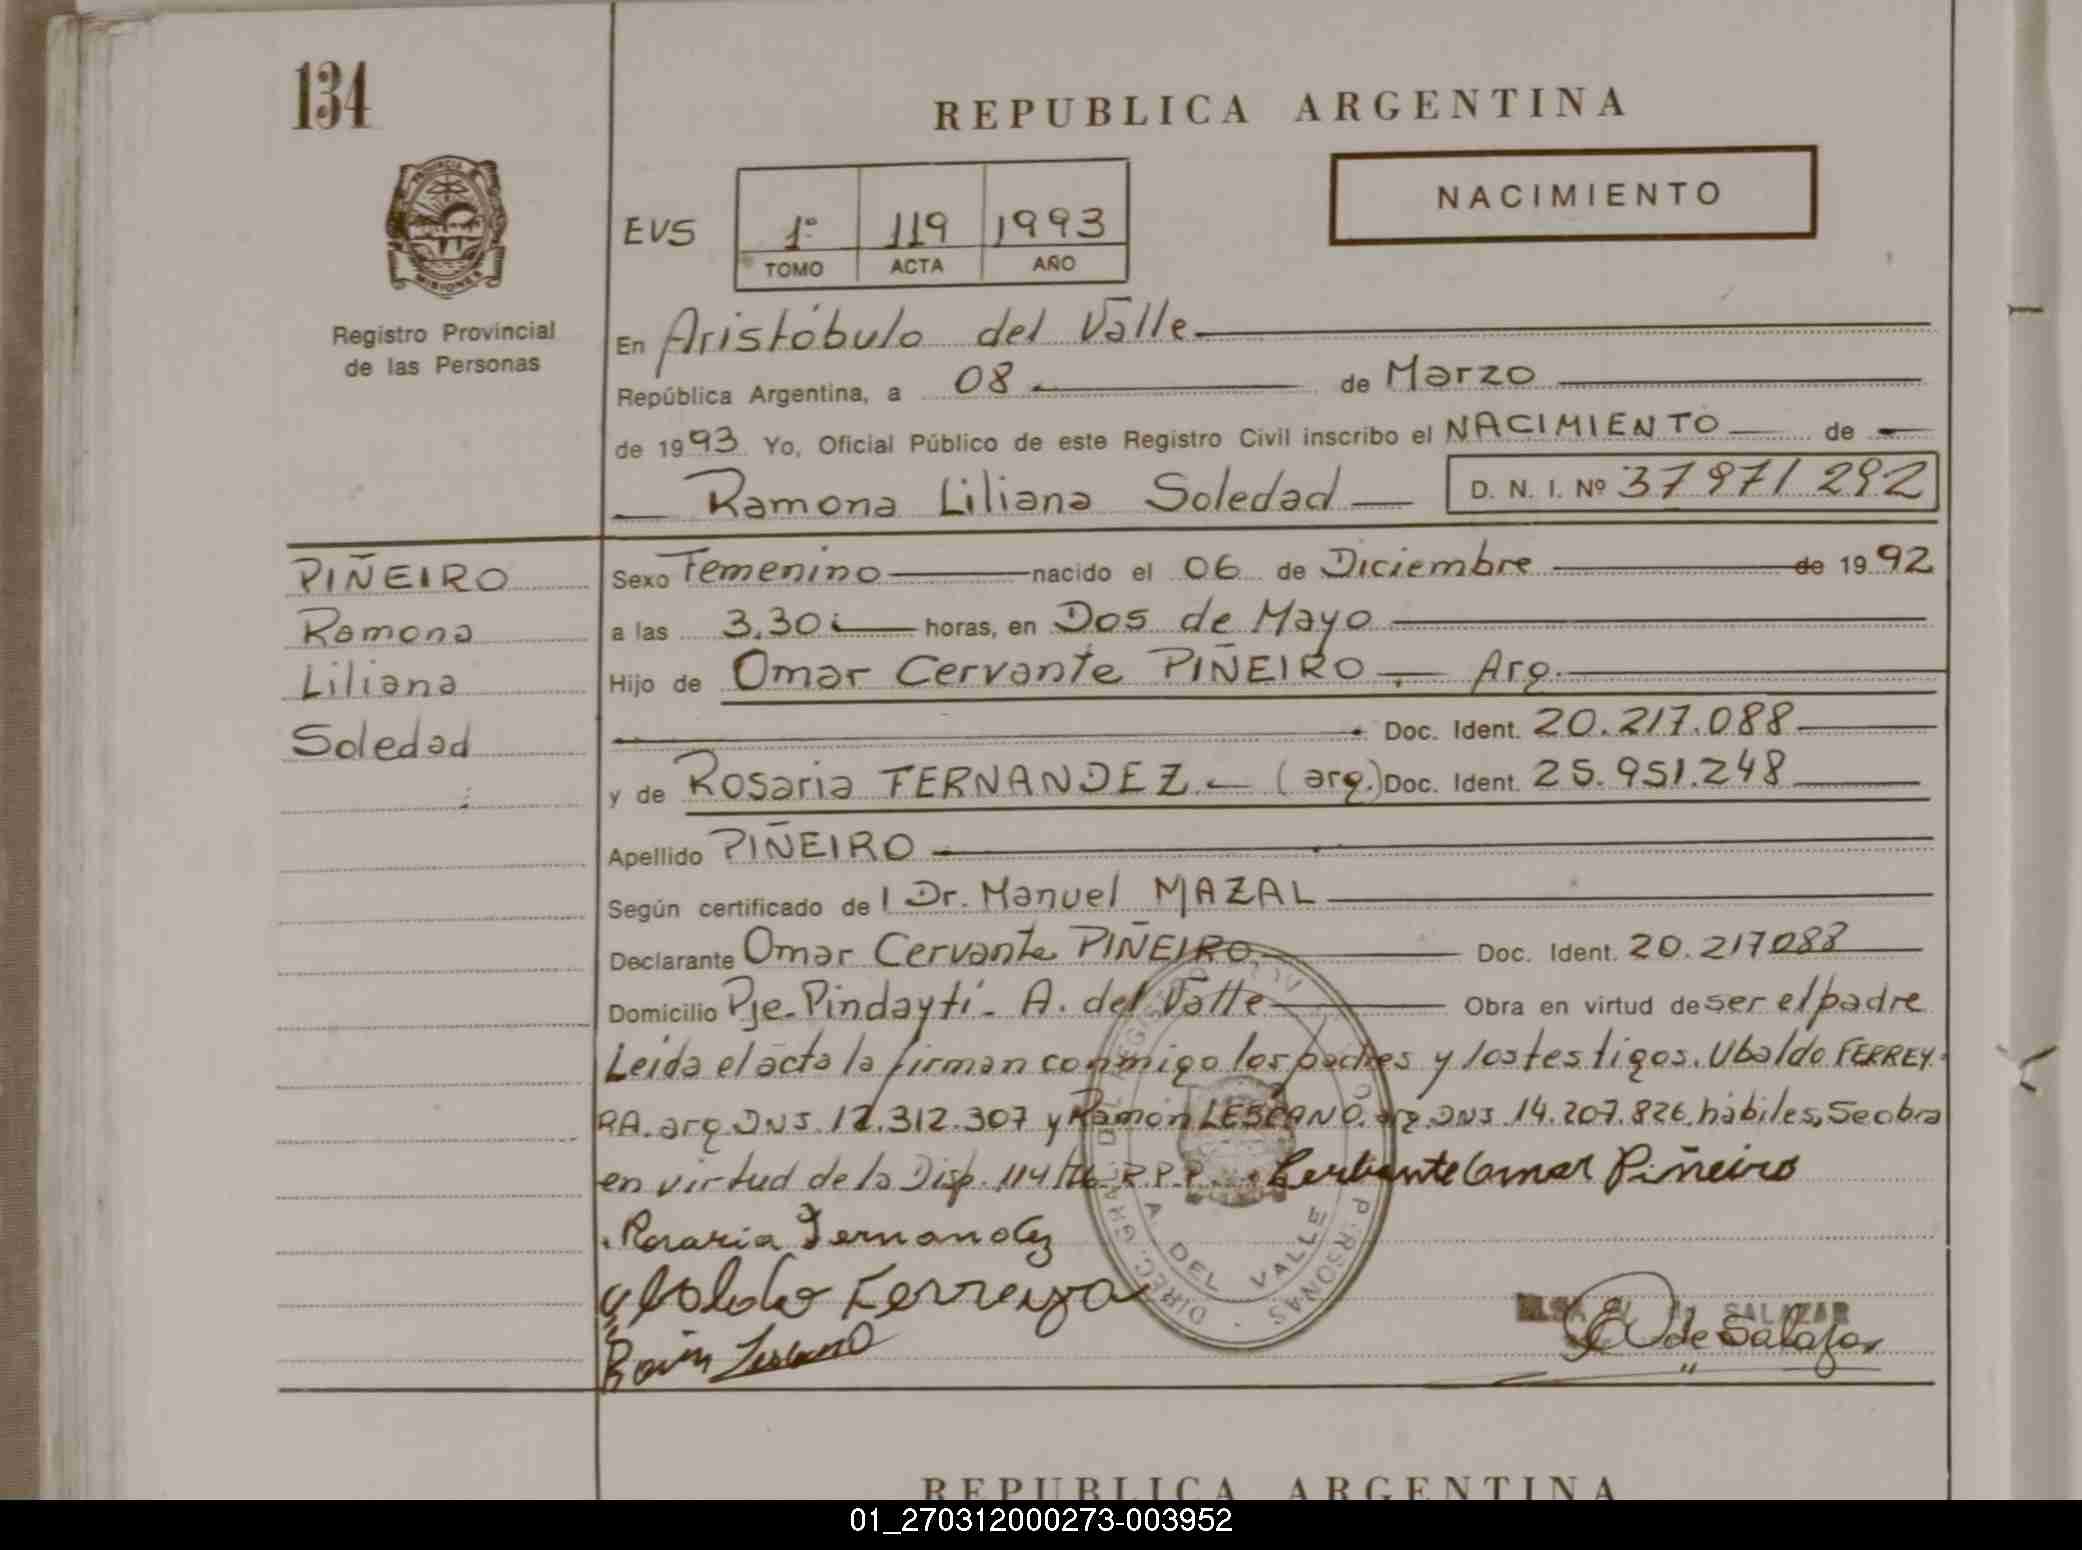 134
REPUBLICA ARGENTINA
NACIMIENTO
EVS
1º 119 1993
TOMO ACTA AÑO
PROVINCIA DE MISIONES
Registro Provincial
de las Personas
En Aristóbulo del Valle
República Argentina, a 08 de Marzo
de 1993 Yo, Oficial Público de este Registro Civil inscribo el NACIMIENTO de
Ramona Liliana Soledad D. N. I. Nº 37971292
PIÑEIRO
Ramona
Liliana
Soledad
Sexo Femenino nacido el 06 de Diciembre de 1992
a las 3.30 horas, en Dos de Mayo
Hijo de Omar Cervante PIÑEIRO Arg.
Doc. Ident. 20.217.088
y de Rosaria FERNANDEZ (arg.) Doc. Ident. 25.951.248
Apellido PIÑEIRO
Según certificado de l Dr. Manuel MAZAL
Declarante Omar Cervante PIÑEIRO Doc. Ident. 20.217088
Domicilio Pje. Pindaytí - A. del Valle Obra en virtud de ser el padre
Leída el acta la firman conmigo los padres y los testigos. Ubaldo FERREY-
RA. arg. DNI. 12.312.307 y Ramón LESCANO. arg. DNI. 14.207.826. hábiles, Se obra
en virtud de la Disp. 114/ R.P.P. Cerbante Omar Piñeiro
Rosaria Fernandez
Ubaldo Ferreyra
Ramón Lescano
SALAZAR
de Salazar
A. DEL VALLE
REPUBLICA ARGENTINA
01_270312000273-003952